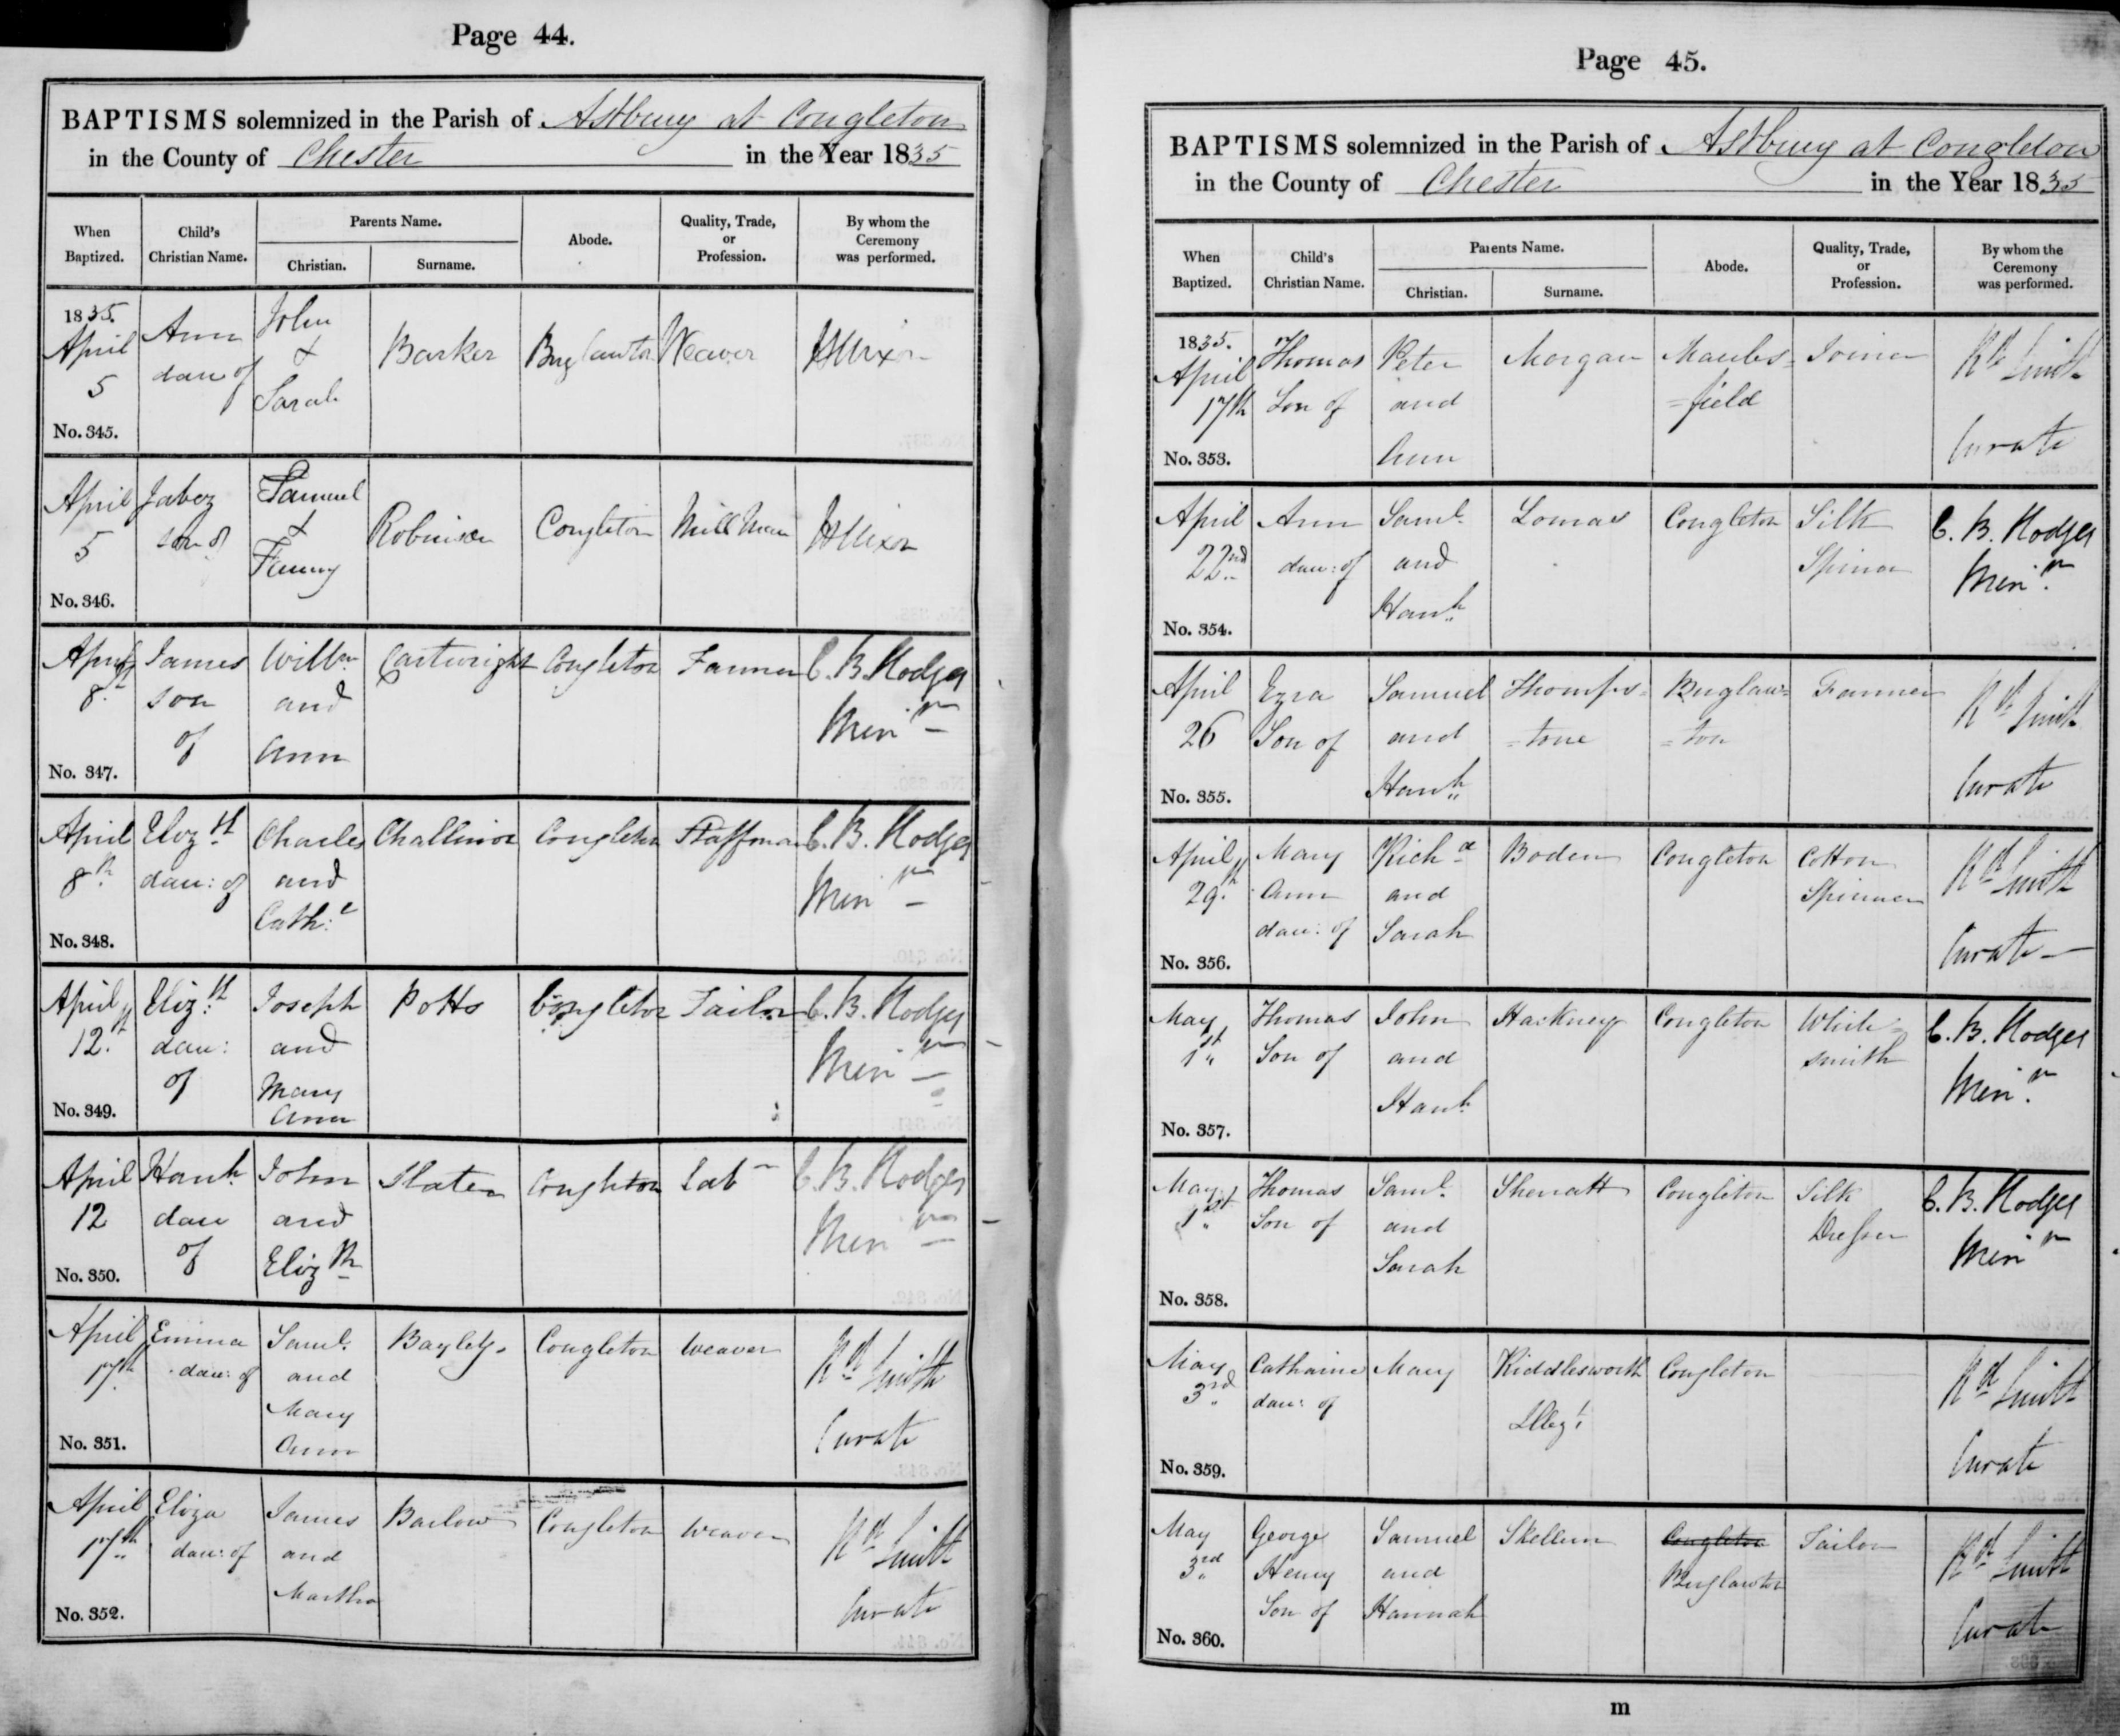 Page 44.
BAPTISMS solemnized in the Parish of Astbury at Congleton
in the County of Chester in the Year 1835
When Baptized. Child's Christian Name. Parents Name. Christian. Surname. Abode. Quality, Trade, or Profession. By whom the Ceremony was performed.
1835. April 5 No. 345. Ann dau of John & Sarah Barker Buglawton Weaver
April 5 No. 346. Jabez son of Samuel & Fanny Robinson Congleton Mill Man
April 8th No. 347. James son of Willm and Ann Cartwright Congleton Farmer C. B. Hodges Minr
April 8th No. 348. Elizth dau: of Charles and Cath:e Challinor Congleton Staffman C. B. Hodges Minr
April 12th No. 349. Elizth dau: of Joseph and Mary Ann Potts Congleton Tailor C. B. Hodges Minr
April 12 No. 350. Hanh dau of John and Elizth Slater Congleton Labr C. B. Hodges Minr
April 17th No. 351. Emma dau: of Saml and Mary Ann Bayley Congleton Weaver Rd Smith Curate
April 17th No. 352. Eliza dau: of James and Martha Barlow Congleton Weaver Rd Smith Curate
Page 45.
BAPTISMS solemnized in the Parish of Astbury at Congleton
in the County of Chester in the Year 1835
When Baptized. Child's Christian Name. Parents Name. Christian. Surname. Abode. Quality, Trade, or Profession. By whom the Ceremony was performed.
1835. April 17th No. 353. Thomas Son of Peter and Ann Morgan Maccles= =field Joiner Rd Smith Curate
April 22nd No. 354. Ann dau: of Saml and Hanh Lomas Congleton Silk Spinner C. B. Hodges Minr
April 26 No. 355. Ezra Son of Samuel and Hanh Thomps= =tone Buglaw= =ton Farmer Rd Smith Curate
April 29th No. 356. Mary Ann dau: of Richd and Sarah Boden Congleton Cotton Spinner Rd Smith Curate
May 1st No. 357. Thomas Son of John and Hanh Hackney Congleton White= smith C. B. Hodges Minr
May 1st No. 358. Thomas Son of Saml and Sarah Sherratt Congleton Silk Dresser C. B. Hodges Minr
May 3rd No. 359. Catharine dau: of Mary Kiddlesworth Illegt Congleton Rd Smith Curate
May 3rd No. 360. George Henry Son of Samuel and Hannah Skellern Congleton Buglawton Tailor Rd Smith Curate
m